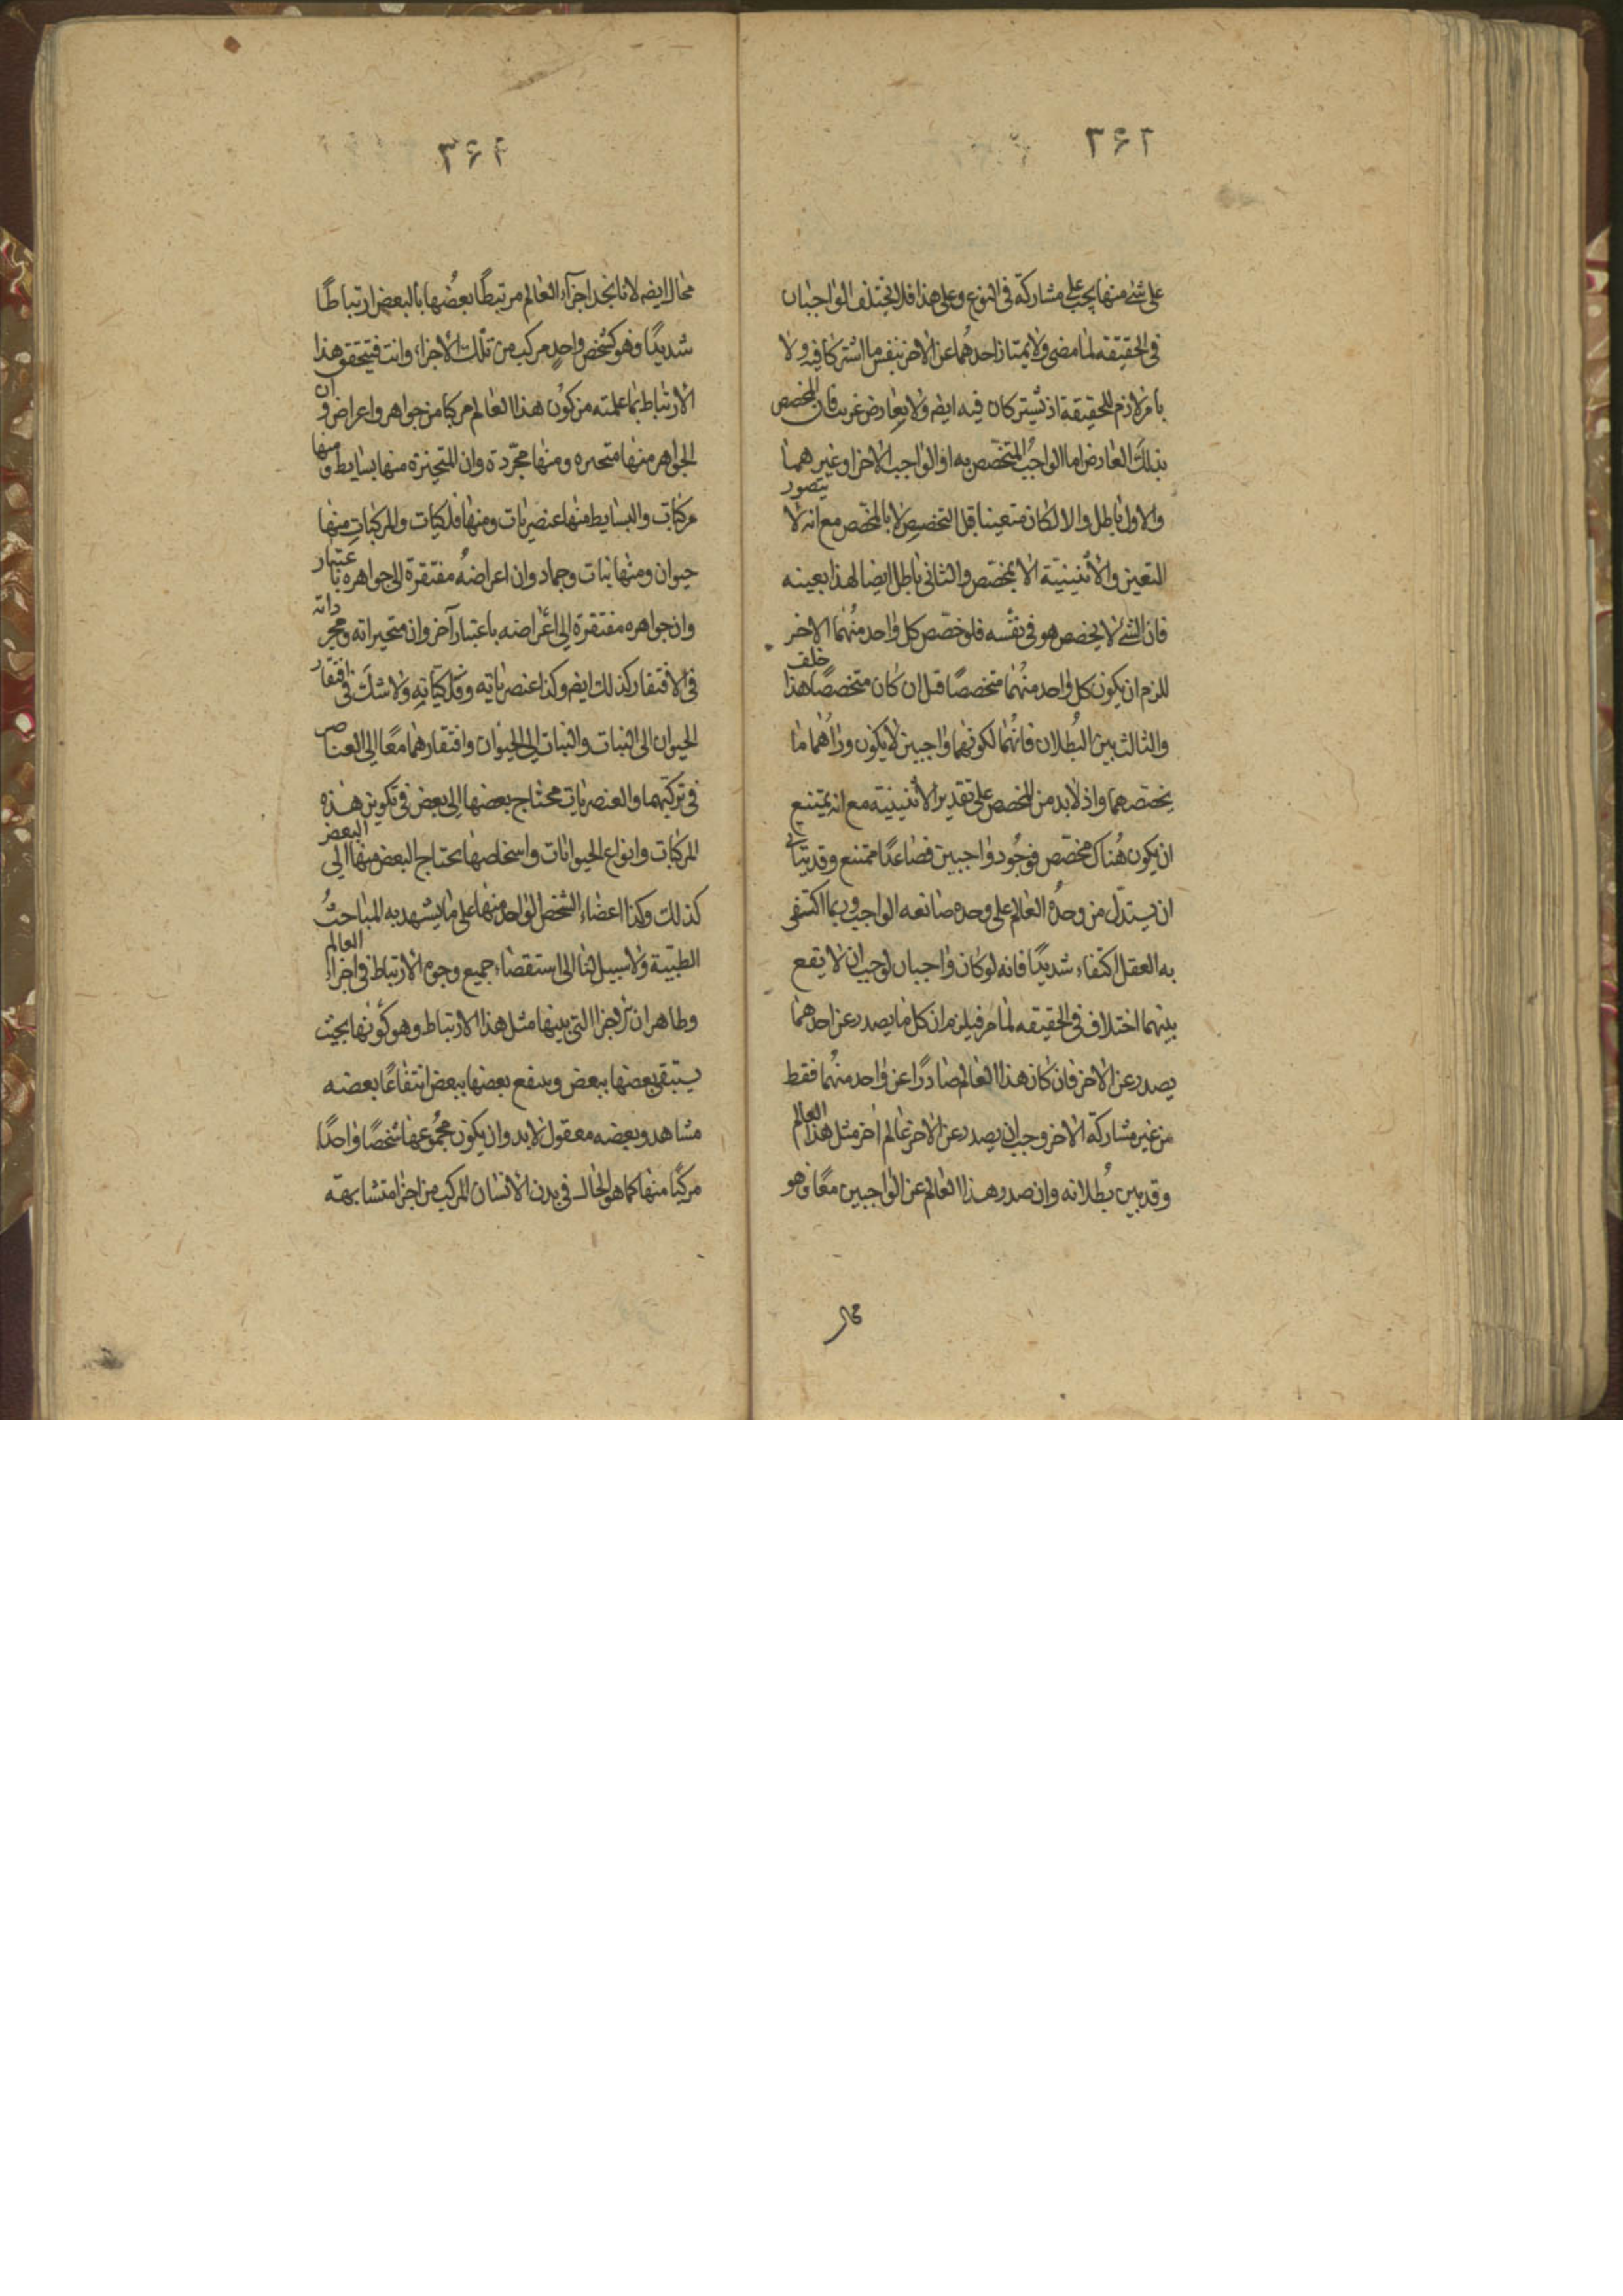 ٣۶٢
على شئ منها يجب على مشاركه فى النوع وعلى هذا فلا يختلف الواجبان
فى الحقيقه لما مضى ولا يمتاز احدهما عن الاخر بنفس ما اشتركا فيه ولا
بامر لازم للحقيقة اذ يشتركان فيه ايضم ولا بعارض غريب فان المخصص
بذلك العارض اما الواجب المتخصص به او الواجب الاخر او غيرهما
والاول باطل والا لكان متعينا قبل التخصيص لا بالمخصص مع انه لا يتصور
التعين والاثنينية الا بمخصص والثانى باطل ايضا لهذا بعينه
فان الشئ لا يخصص هو فى نفسه فلو خصص كل واحد منهما الاخر
للزم ان يكون كل واحد منهما متخصصًا قبل ان كان متخصصًا هذا خلف
والثالث بين البطلان فانهما لكونهما واجبين لا يكون وراهما ما
يخصصهما واذ لابد من المخصص على تقدير الاثنينية مع انه يمتنع
ان يكون هناك مخصص فوجود واجبين فصاعدًا ممتنع وقد يتأتى
ان يستدل من وحدة العالم على وحده صانعه الواجب وربما اكتفى
به العقل اكتفاء شديدًا فانه لو كان واجبان لوجب ان لا يقع
بينهما اختلاف فى الحقيقه لما مر فيلزم ان كل ما يصدر عن احدهما
يصدر عن الاخر فان كان هذا العالم صادرًا عن واحد منهما فقط
من غير مشاركة الاخر وجب ان يصدر عن الاخر عالم آخر مثل هذا العالم
وقد بين بطلانه وان صدر هذا العالم عن الواجبين معًا وهو
محال
٣۶٣
محال ايضم لانا نجد اجزآء العالم مرتبطًا بعضها بالبعض ارتباطًا
شديدًا وهو كشخص واحدٍ مركب من تلك الاجزاء وانت فيتحقق هذا
الارتباط بما علمته من كون هذا العالم مركبا من جواهر واعراض وان
الجواهر منها متحيزه ومنها مجردة وان المتحيزة منها بسايط ومنها
مركبات والبسايط منها عنصريات ومنها فلكيات والمركبات منها
حيوان ومنها نبات وجماد وان اعراضهُ مفتقرة الى جواهره باعتبار
وان جواهره مفتقرة الى اعراضه باعتبار آخر وان متحيراته ومجرداته
فى الافتقار كذلك ايضم وكذا عنصرياته وفلكياته ولا شك فى افتقار
الحيوان الى النبات والنبات الى الحيوان وافتقارهما معًا الى العناصر
فى تركبهما والعنصريات محتاج بعضها الى بعض فى تكوين هذه
المركبات وانواع الحيوانات واسخاصها يحتاج البعض منها الى البعض
كذلك وكذا اعضاء الشخص الواحد منها على ما يشهد به المباحث
الطبّية ولا سبيل لنا الى استقصاء جميع وجوه الارتباط فى اجزاء العالم
وطاهر ان الاجزا التى بينها مثل هذا الارتباط وهو كونها بحيث
يستبقى بعضها ببعض وينفع بعضها ببعض انتفاعًا بعضه
مشاهد وبعضه معقول لابد وان يكون مجموعها شخصًا واحدًا
مركبًا منها كما هو الحال فى بدن الانسان المركب من اجزا متشابهة